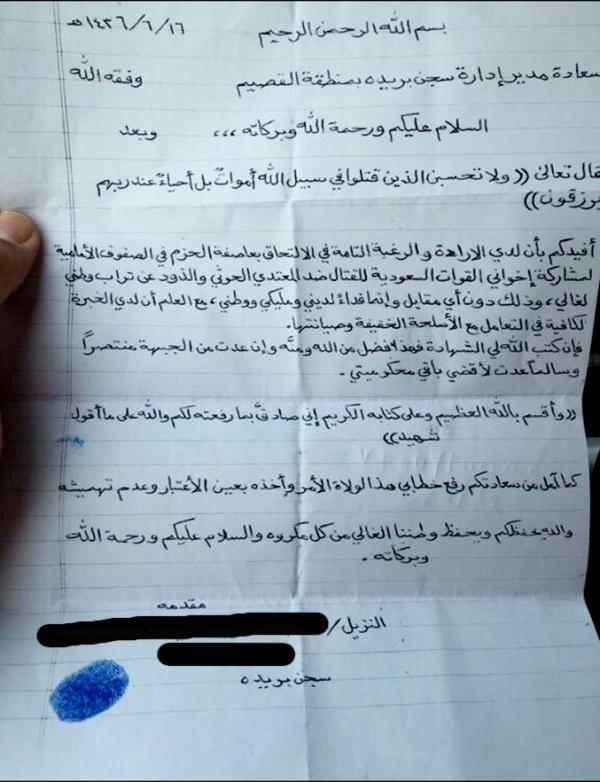 بسم الله الرحمن الرحيم ١٤٣٦/٦/١٦ هـ
سعادة مدير إدارة سجن بريده بمنطقة القصيم وفقه الله
السلام عليكم ورحمة الله وبركاته ،،، وبعد
قال تعالى (( ولا تحسبن الذين قتلوا في سبيل الله أمواتٌ بل أحياءٌ عند ربهم
يرزقون ))
أفيدكم بأن لدي الإرادة والرغبة التامة في الالتحاق بعاصفة الحزم في الصفوف الأمامية
لمشاركة إخواني القوات السعودية للقتال ضد المعتدي الحوثي والذود عن تراب وطني
لغالي ، وذلك دون أي مقابل وإنما فداءً لديني ومليكي ووطني ، مع العلم أن لدي الخبرة
لكافية في التعامل مع الأسلحة الخفيفة وصيانتها .
فإن كتب الله لي الشهادة فهذا فضل من الله ومنّه وإن عدت من الجبهة منتصراً
وسالماً عدت لأقضي باقي محكوميتي .
(( وأقسم بالله العظيم وعلى كتابه الكريم إني صادقٌ بما رفعته لكم والله على ما أقول
شهيد ))
كما آمل من سعادتكم رفع خطابي هذا لولاة الأمر وأخذه بعين الأعتبار وعدم تهميشه
والله يحفظكم ويحفظ وطننا الغالي من كل مكروه والسلام عليكم ورحمة الله
وبركاته .
مقدمه
النزيل /
سجن بريده